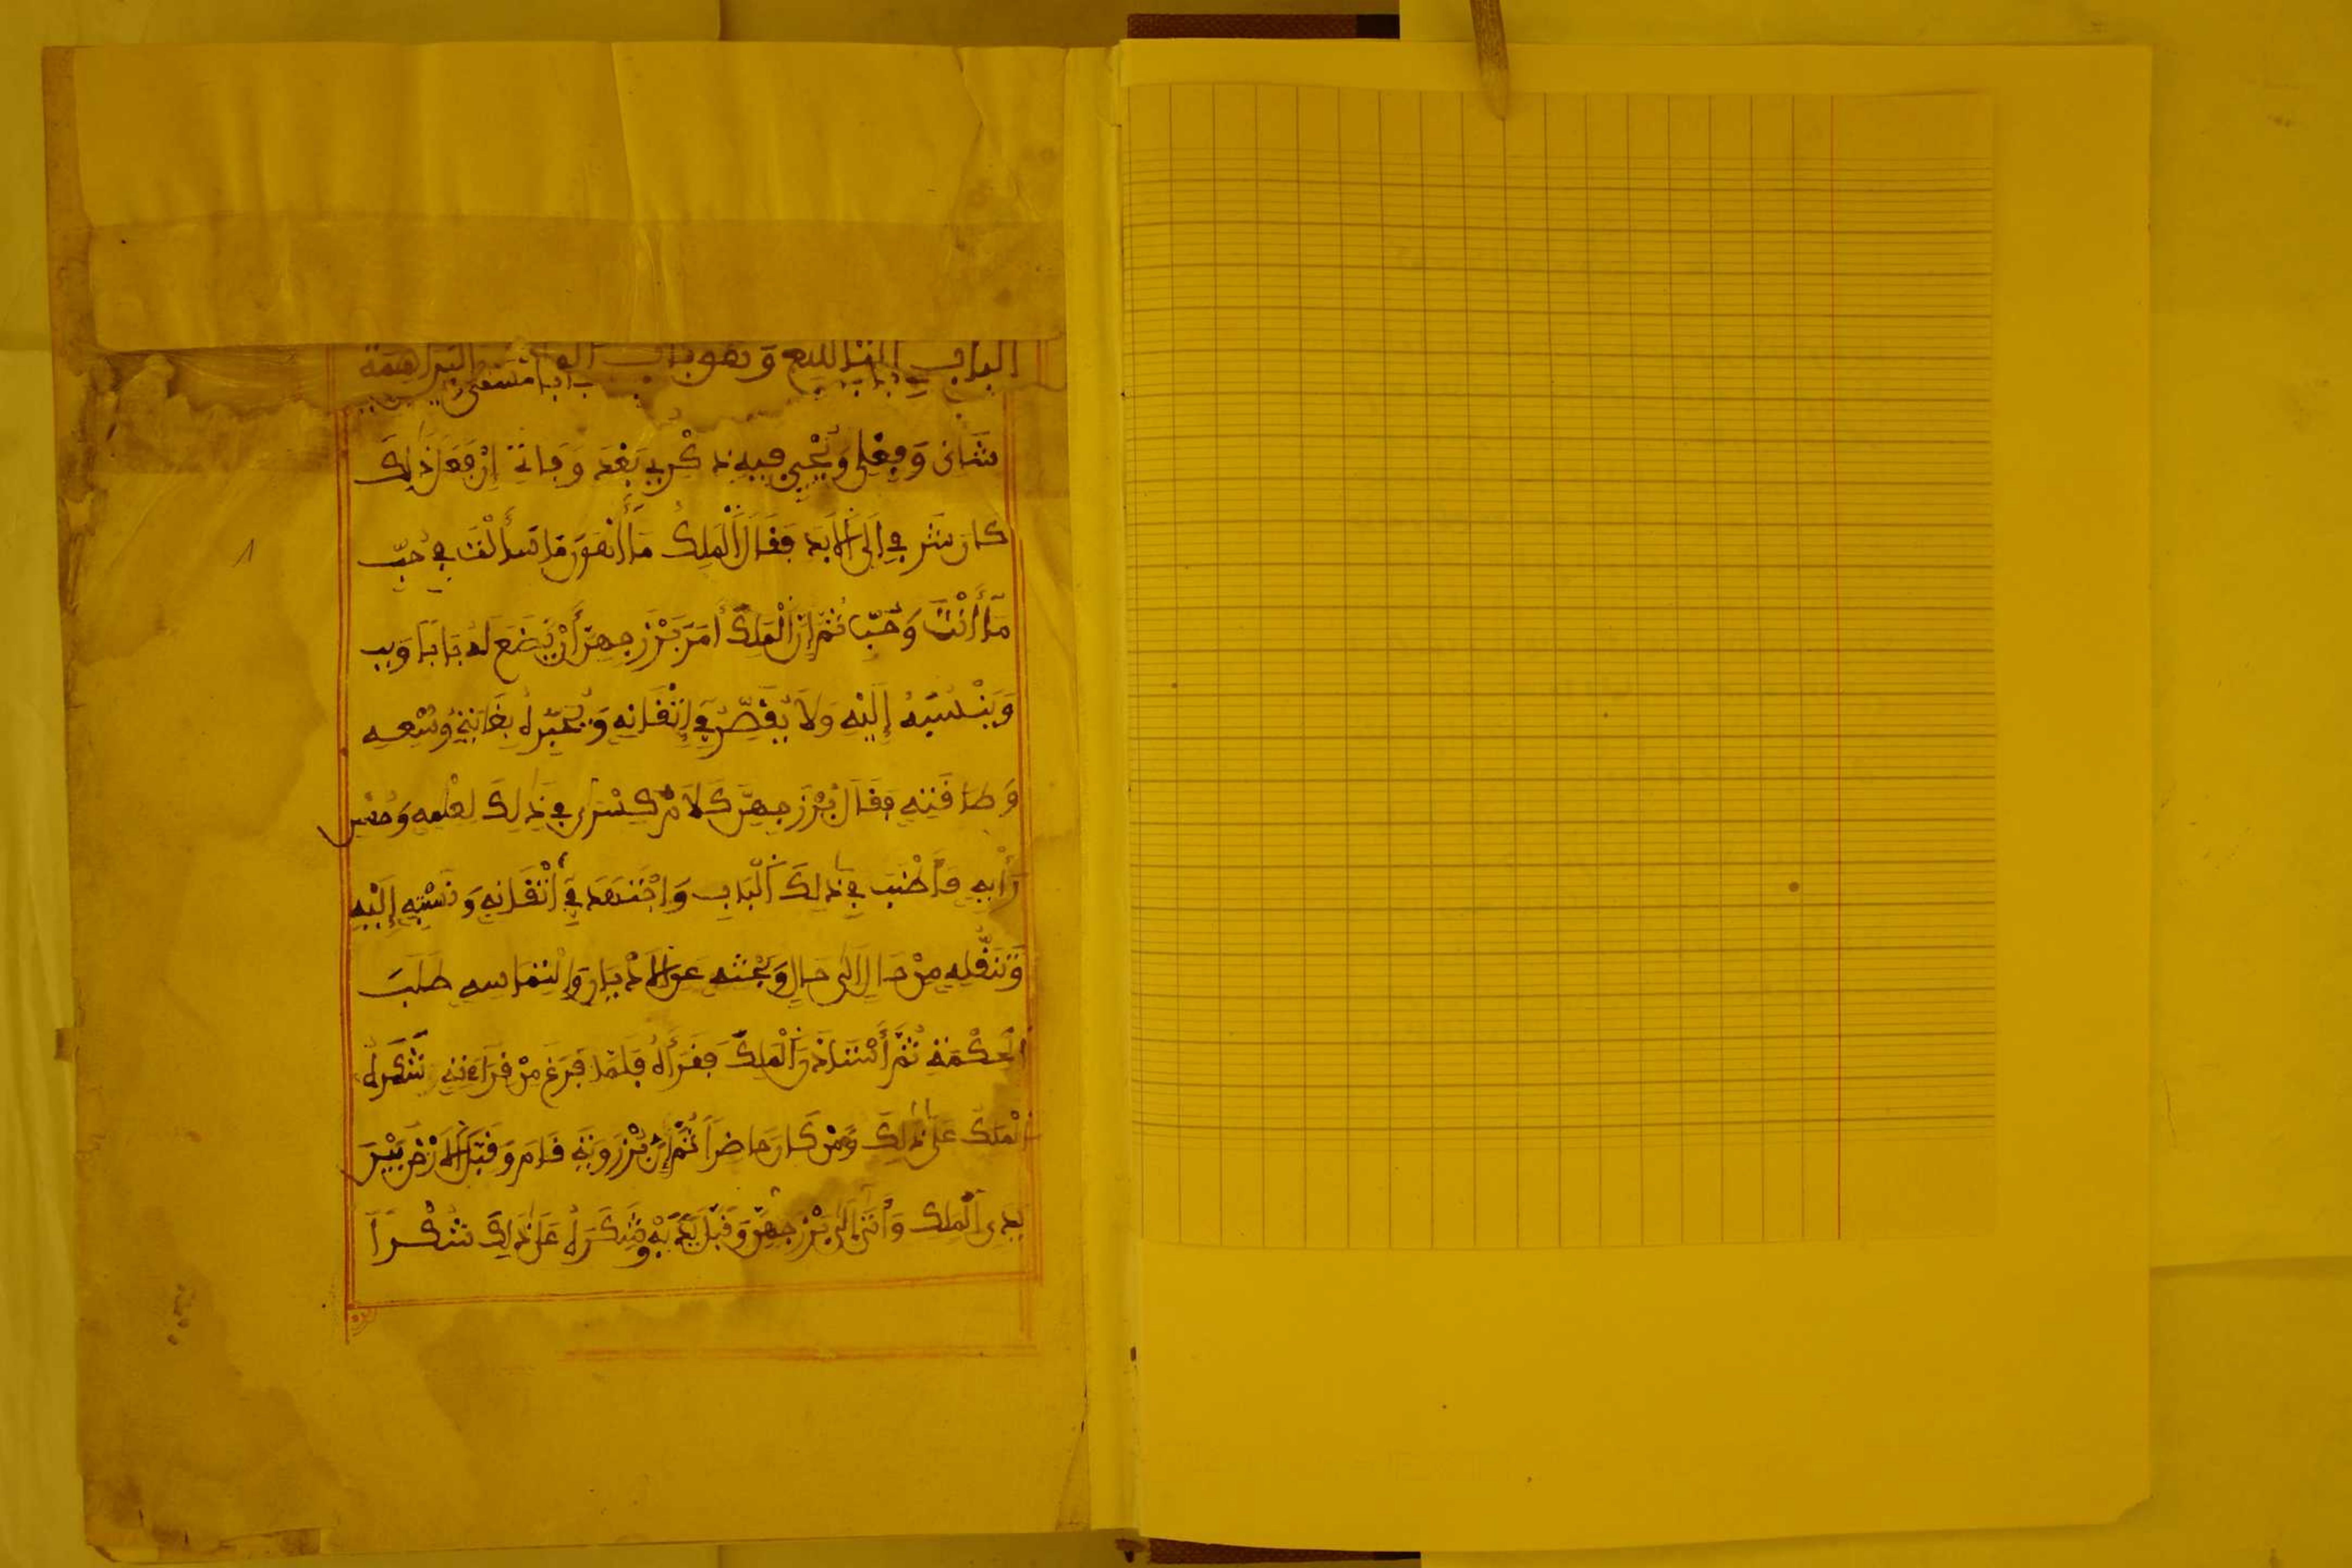 الباب
شَانِى وَفِعْلِى وَيُحْيِى فِيهِ ذِكْرِى بَعْدَ وَفَاتِى إِنْ فَعَلَ ذَٰلِكَ
كَانَ شَرَفِى إِلَى الْأَبَدِ فَقَالَ الْمَلِكُ مَا أَهْوَنَ مَا سَأَلْتَ فِى حُبِّ
مَا أَنْتَ وَحُبِّنَا ثُمَّ إِنَّ الْمَلِكَ أَمَرَ بَزْرَجِمِهْرَ أَنْ يَضَعَ لَهُ بَابًا
وَيَنْسُبَهُ إِلَيْهِ وَلَا يُقَصِّرُ فِى إِتْقَانِهِ وَيُحَبِّرُهُ بِغَايَةِ وُسْعِهِ
وَطَاقَتِهِ فَقَالَ بُزْرَجِمِهْرُ كَلَامَ كِسْرَى فِى ذَٰلِكَ لِعِلْمِهِ وَحُسْنِ
رَأْيِهِ فَأَطْنَبَ فِى ذَٰلِكَ الْبَابِ وَاجْتَهَدَ فِى إِتْقَانِهِ وَنِسْبَتِهِ إِلَيْهِ
وَتَنَقُّلِهِ مِنْ حَالٍ إِلَى حَالٍ وَبَحْثِهِ عَنِ الْأَدْيَانِ وَالْتِمَاسِهِ طَلَبَ
الْحِكْمَةِ ثُمَّ أَسْتَاذَنَ الْمَلِكَ فَقَرَأَهُ فَلَمَّا فَرَغَ مِنْ قِرَاءَتِهِ شَكَرَهُ
الْمَلِكُ عَلَى ذَٰلِكَ وَمَنْ كَانَ حَاضِرًا ثُمَّ إِنَّ بُرْزَوَيْهِ قَامَ وَقَبَّلَ الْأَرْضَ بَيْنَ
يَدَىِ الْمَلِكِ وَأَتَى إِلَى بَزْرَجِمِهْرَ وَقَبَّلَ يَدَيْهِ وَشَكَرَهُ عَلَى ذَٰلِكَ شُكْرًا